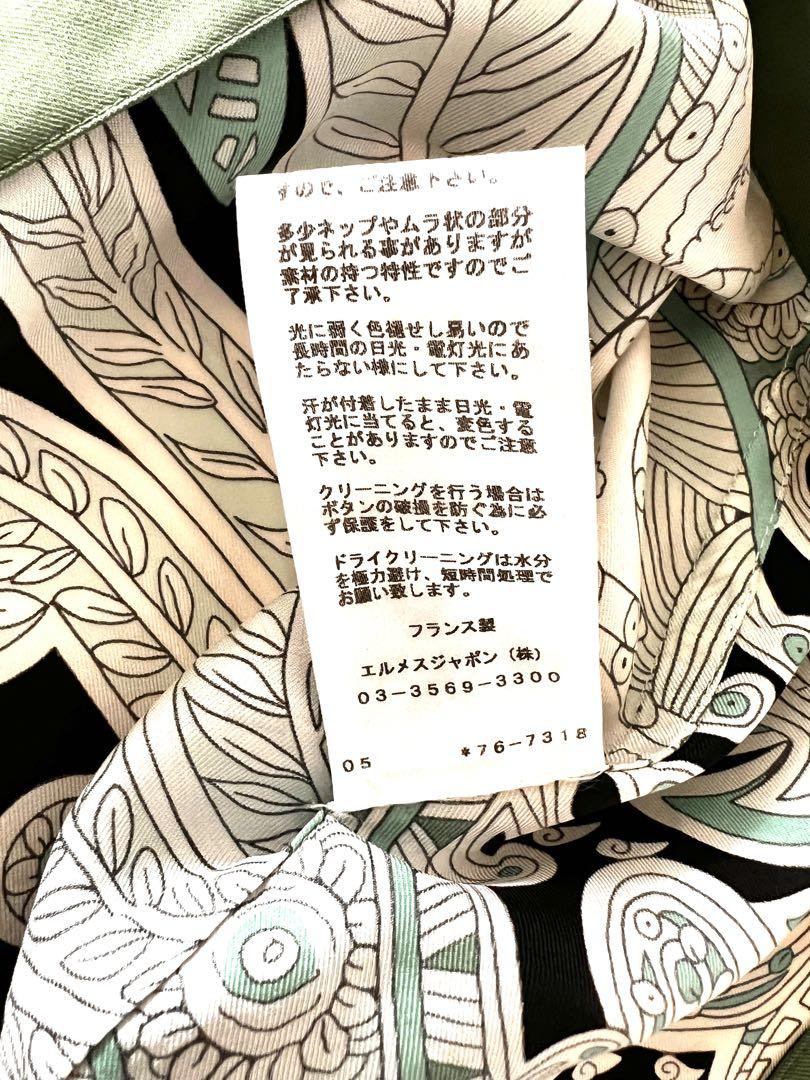 すので、ご注意下さい。
多少ネップやムラ状の部分
が見られる事がありますが
素材の持つ特性ですのでご
了承下さい。
光に弱く色褪せし易いので
長時間の日光・電灯光にあ
たらない様にして下さい。
汗が付着したまま日光・電
灯光に当てると、変色する
ことがありますのでご注意
下さい。
クリーニングを行う場合は
ボタンの破損を防ぐ為に必
ず保護をして下さい。
ドライクリーニングは水分
を極力避け、短時間処理で
お願い致します。
フランス製
エルメスジャポン（株）
03-3569-3300
05 *76-7318